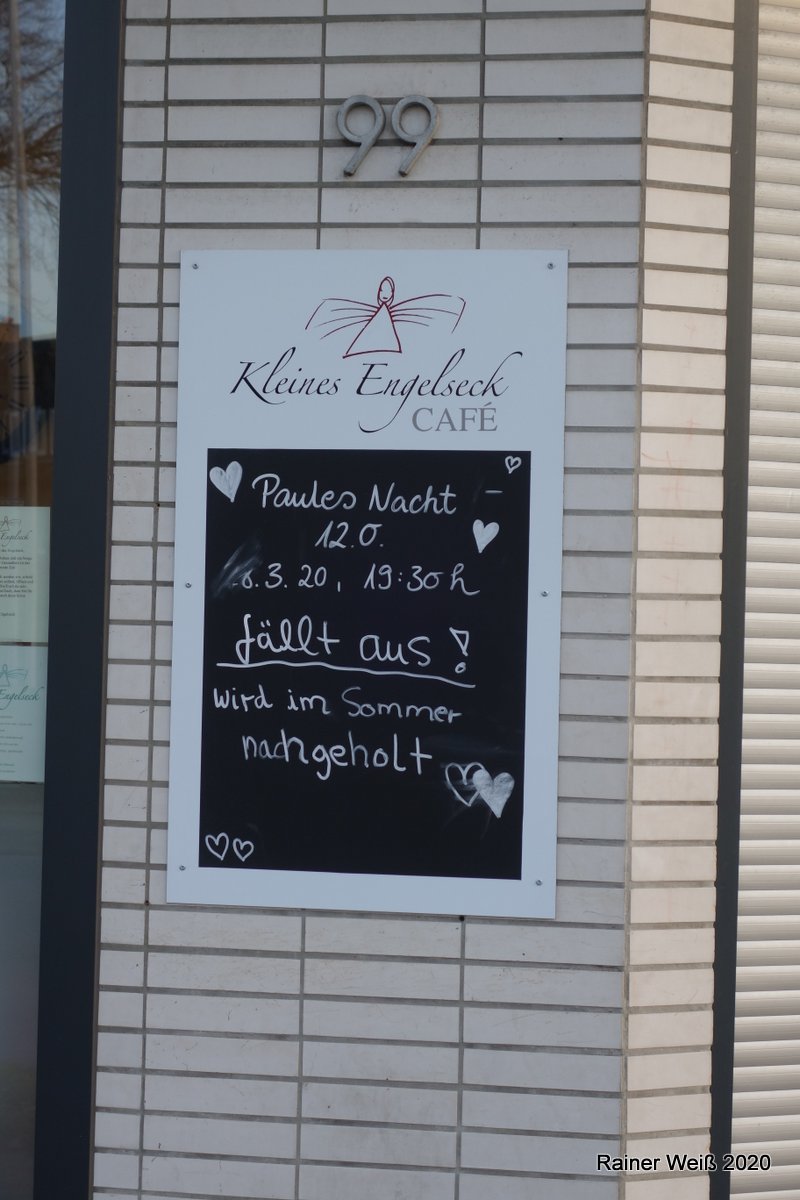 99
Kleines Engelseck
CAFÉ
Paules Nacht -
12.0.
.3.20, 19:30h
fällt aus!
wird im Sommer
nachgeholt
Engelseck
Rainer Weiß 2020